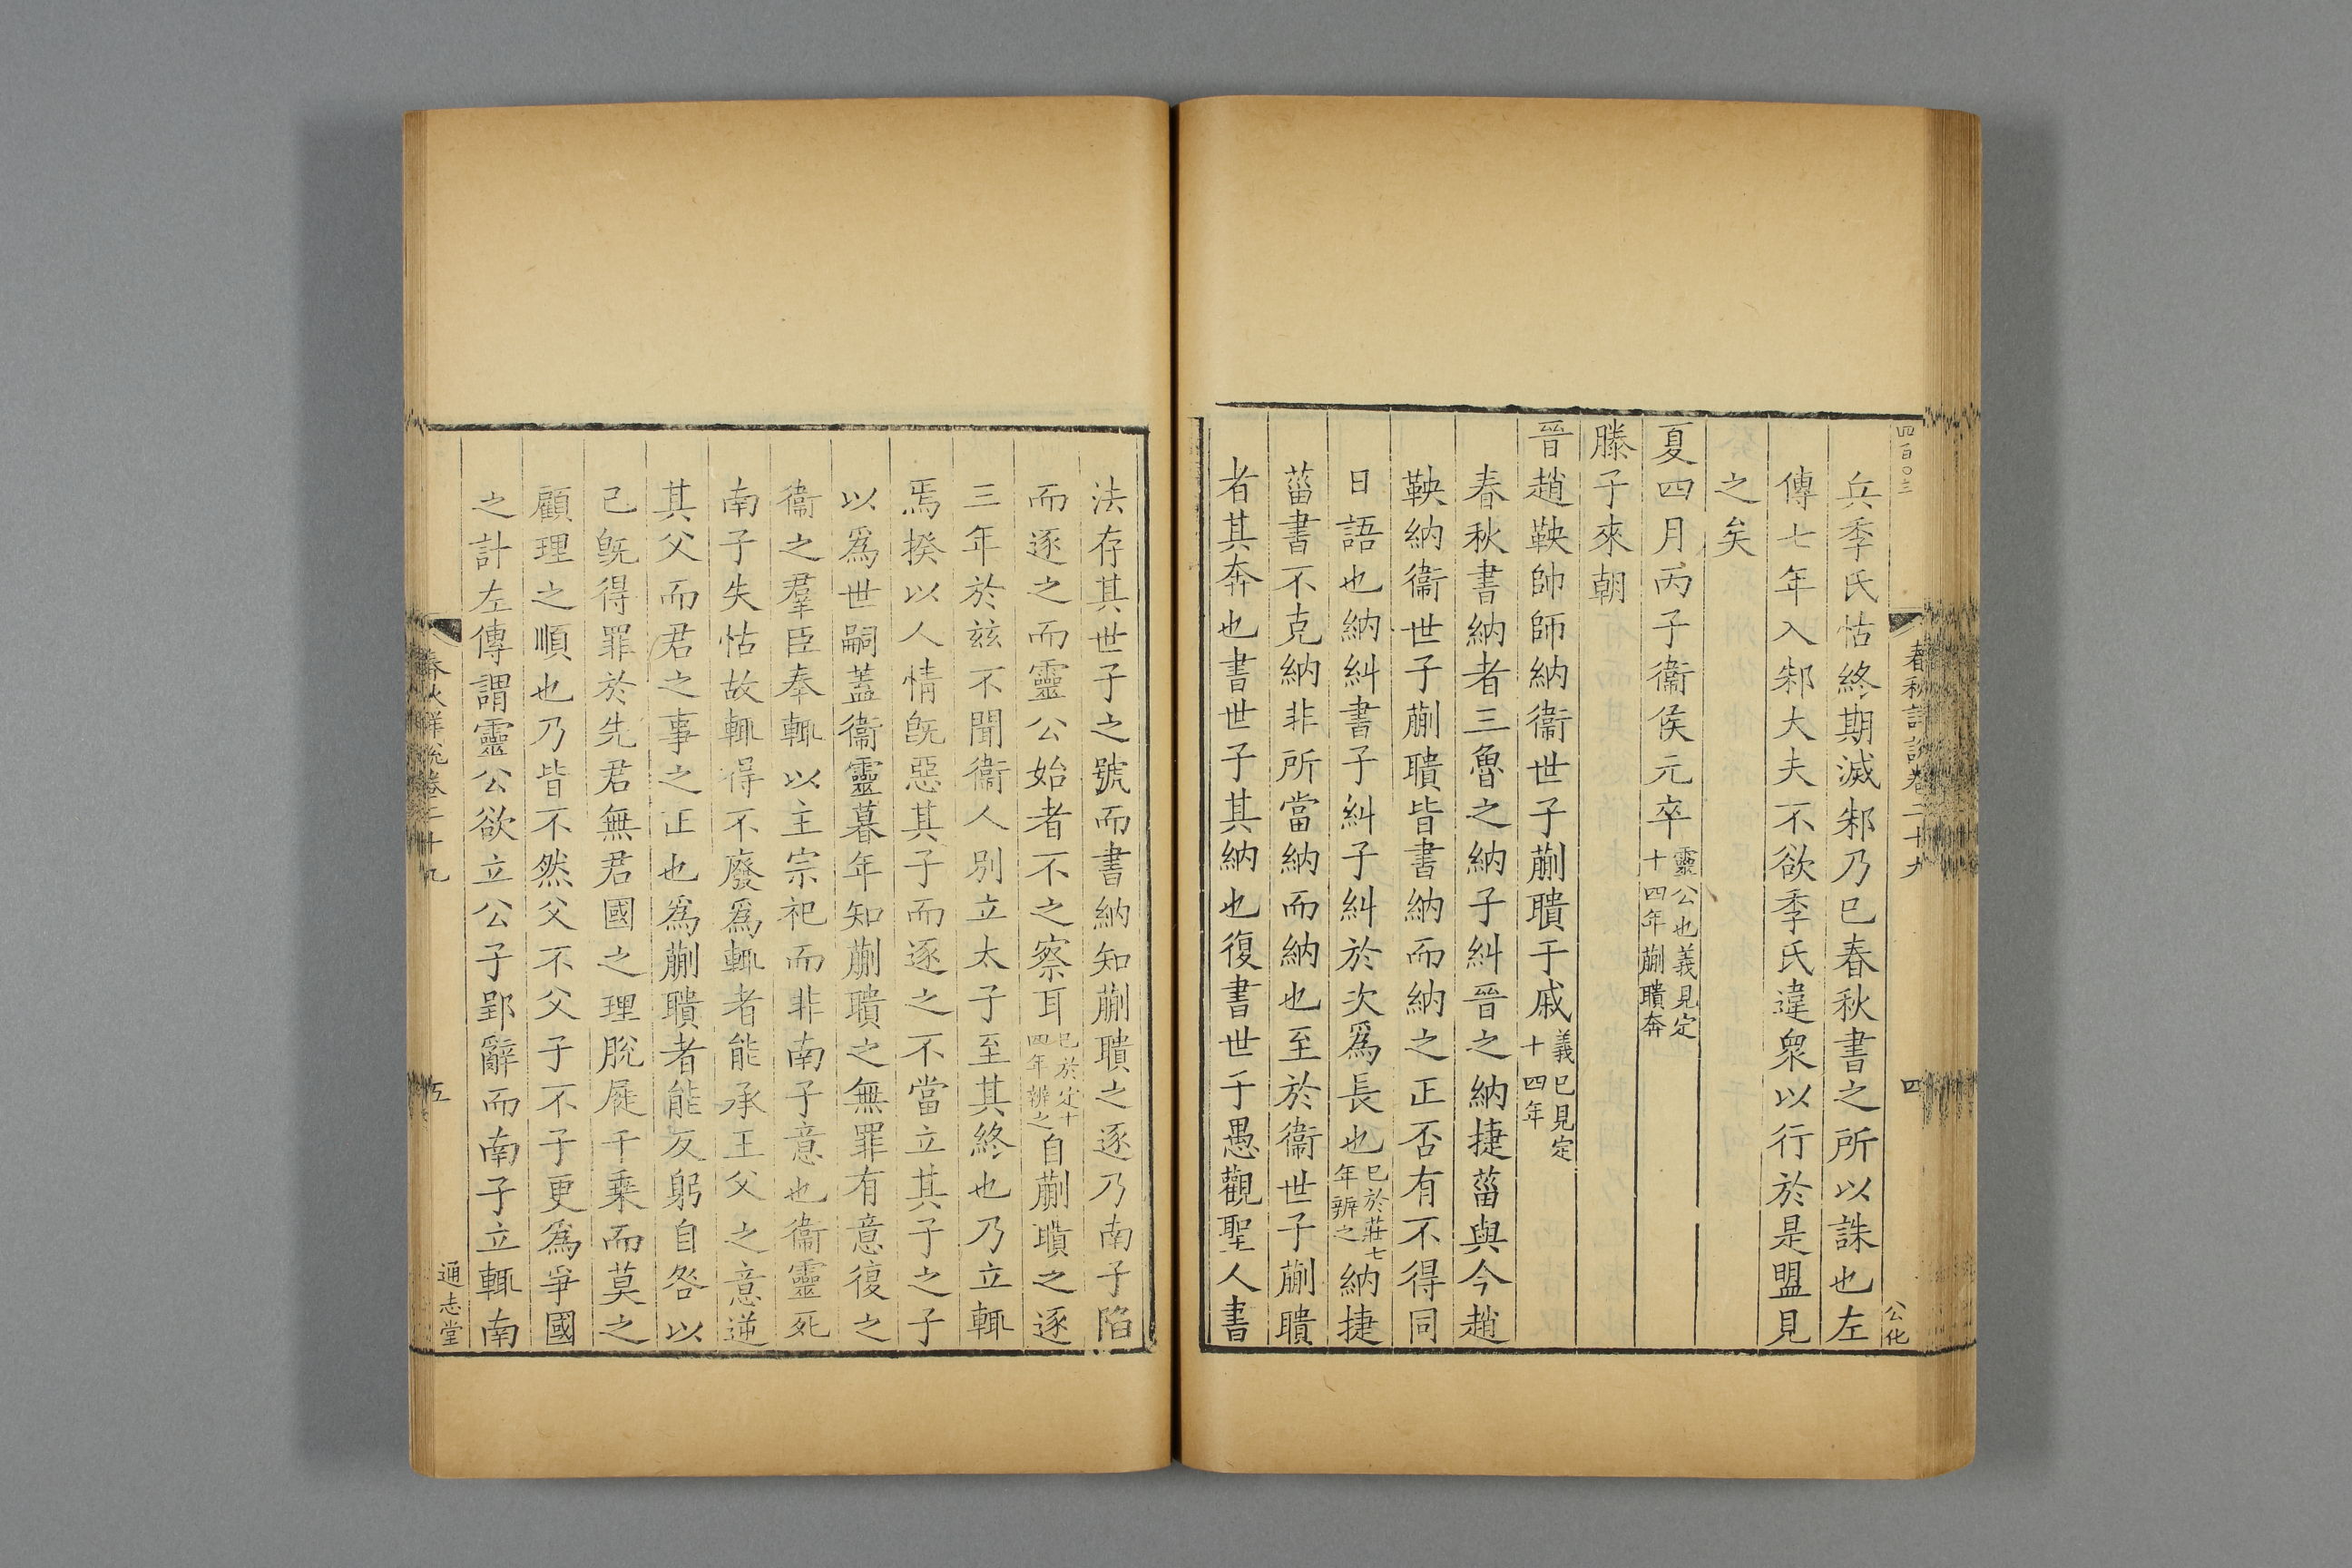 四百〇三
春秋詳說卷二十九
四
公化
兵季氏怙終期滅邾乃已春秋書之所以誅也左
傳七年入邾大夫不欲季氏違衆以行於是盟見
之矣
夏四月丙子衞侯元卒靈公也義見定十四年蒯聵奔
滕子來朝
晉趙鞅帥師納衞世子蒯聵于戚義已見定十四年
春秋書納者三魯之納子糾晉之納捷菑與今趙
鞅納衞世子蒯聵皆書納而納之正否有不得同
日語也納糾書子糾子糾於次爲長也已於莊七年辨之納捷
菑書不克納非所當納而納也至於衞世子蒯聵
者其奔也書世子其納也復書世子愚觀聖人書
法存其世子之號而書納知蒯聵之逐乃南子陷
而逐之而靈公始者不之察耳已於定十四年辨之自蒯聵之逐
三年於兹不聞衞人別立太子至其終也乃立輒
焉揆以人情旣惡其子而逐之不當立其子之子
以爲世嗣蓋衞靈暮年知蒯聵之無罪有意復之
衞之羣臣奉輒以主宗祀而非南子意也衞靈死
南子失怙故輒得不廢爲輒者能承王父之意逆
其父而君之事之正也爲蒯聵者能反躬自咎以
己旣得罪於先君無君國之理脫屣千乗而莫之
顧理之順也乃皆不然父不父子不子更爲爭國
之計左傳謂靈公欲立公子郢辭而南子立輒南
春秋詳說卷二十九
五
通志堂